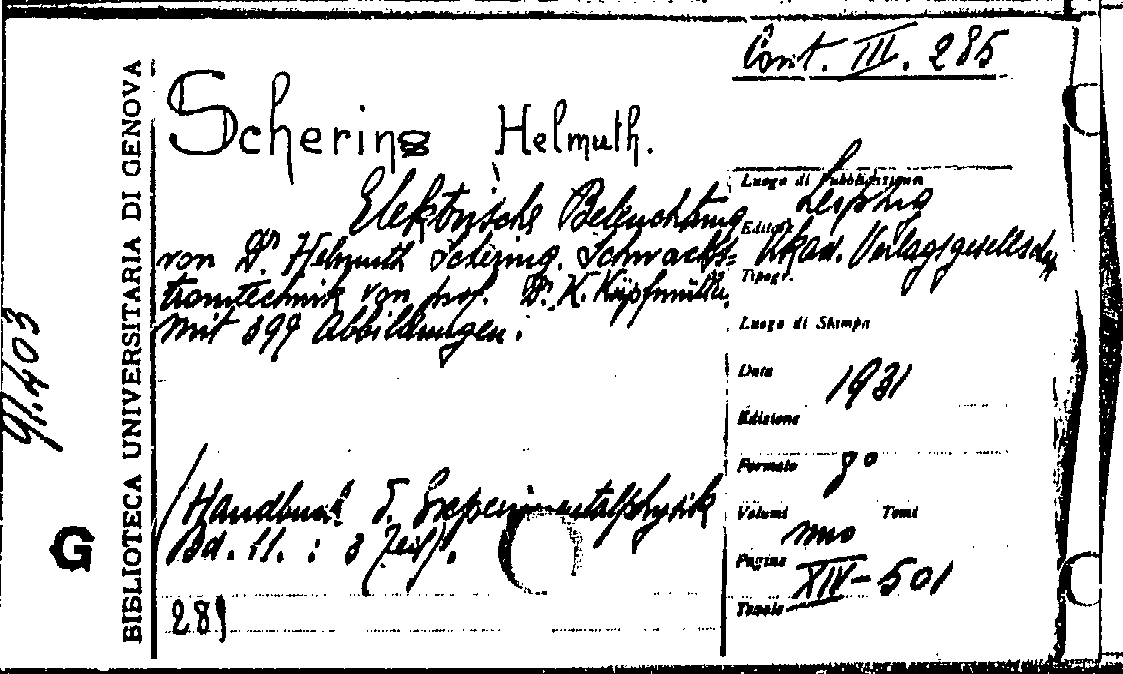 Cont. III. 285
Schering Helmuth.
Elektrische Beleuchtung
von Dr. Helmuth Schering. Schwachs-
tromtechnik von prof. Dr. K. Küpfmüller.
Mit 399 Abbildungen.
(Handbuch d. Experimentalphysik
Bd. 11. : 3 Teil).
289
Luogo di Pubblicazione Leipzig
Editore Akad. Verlagsgesellsch.
Tipogr.
Luogo di Stampa
Data 1931
Edizione
Formato 8°
Volumi Tomi
uno
Pagine XIV-501
Tavole
BIBLIOTECA UNIVERSITARIA DI GENOVA
G
91.403